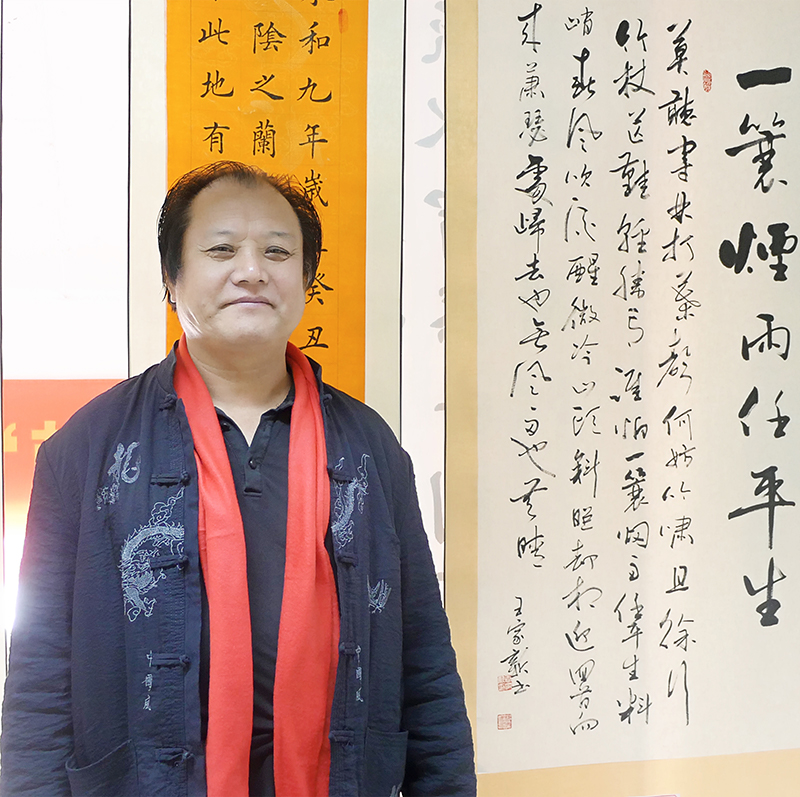 一簑煙雨任平生
莫聽穿林打葉聲何妨吟嘯且徐行
竹杖芒鞋輕勝馬誰怕一簑烟雨任平生料
峭春風吹酒醒微冷山頭斜照却相迎回首向
来蕭瑟處歸去也無風雨也無晴
王家书
和九年歲癸丑
陰之蘭
此地有